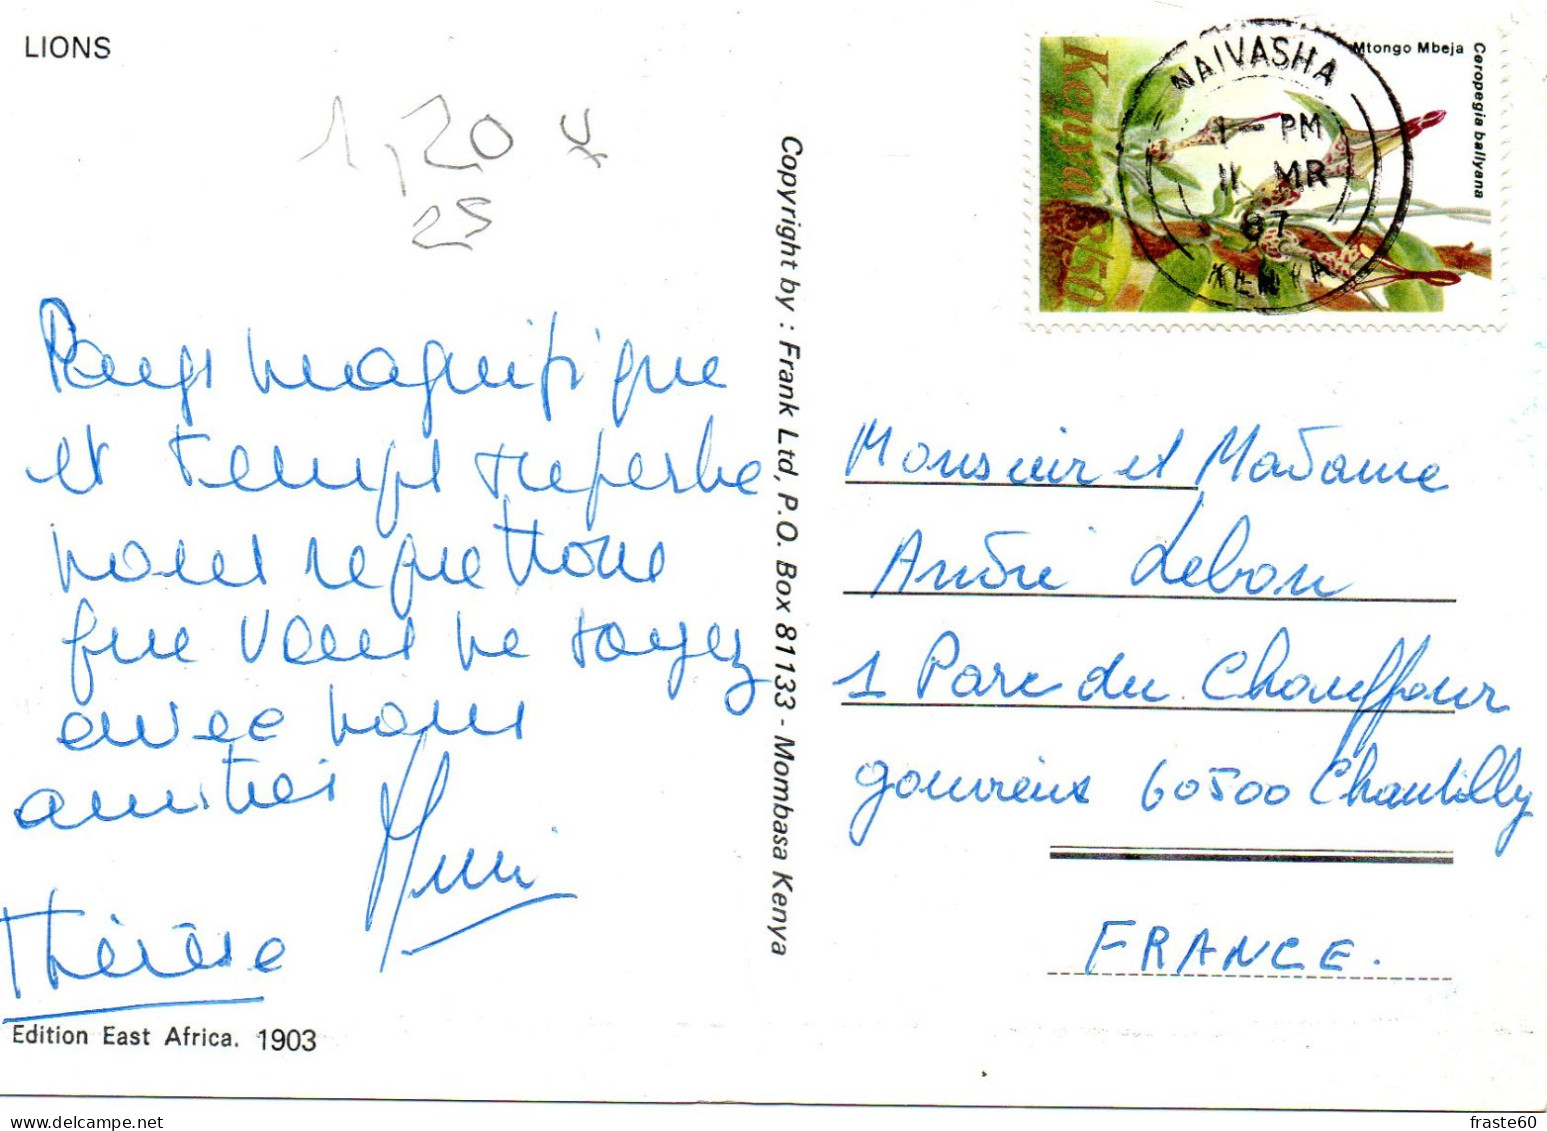 LIONS
1,20
25
Pays magnifique
et temps superbe
nous regrettons
que vous ne soyez
avec nous
amitiés
Thérèse
Edition East Africa. 1903
Copyright by : Frank Ltd, P.O. Box 81133 - Mombasa Kenya
Kenya
3/50
Mtongo Mbeja
Ceropegia ballyana
NAIVASHA
1 - PM
11 MR
87
KENYA
Monsieur et Madame
André Lebon
1 Parc du Chauffour
gouvieux 60500 Chantilly
FRANCE.
delcampe.net
fraste60